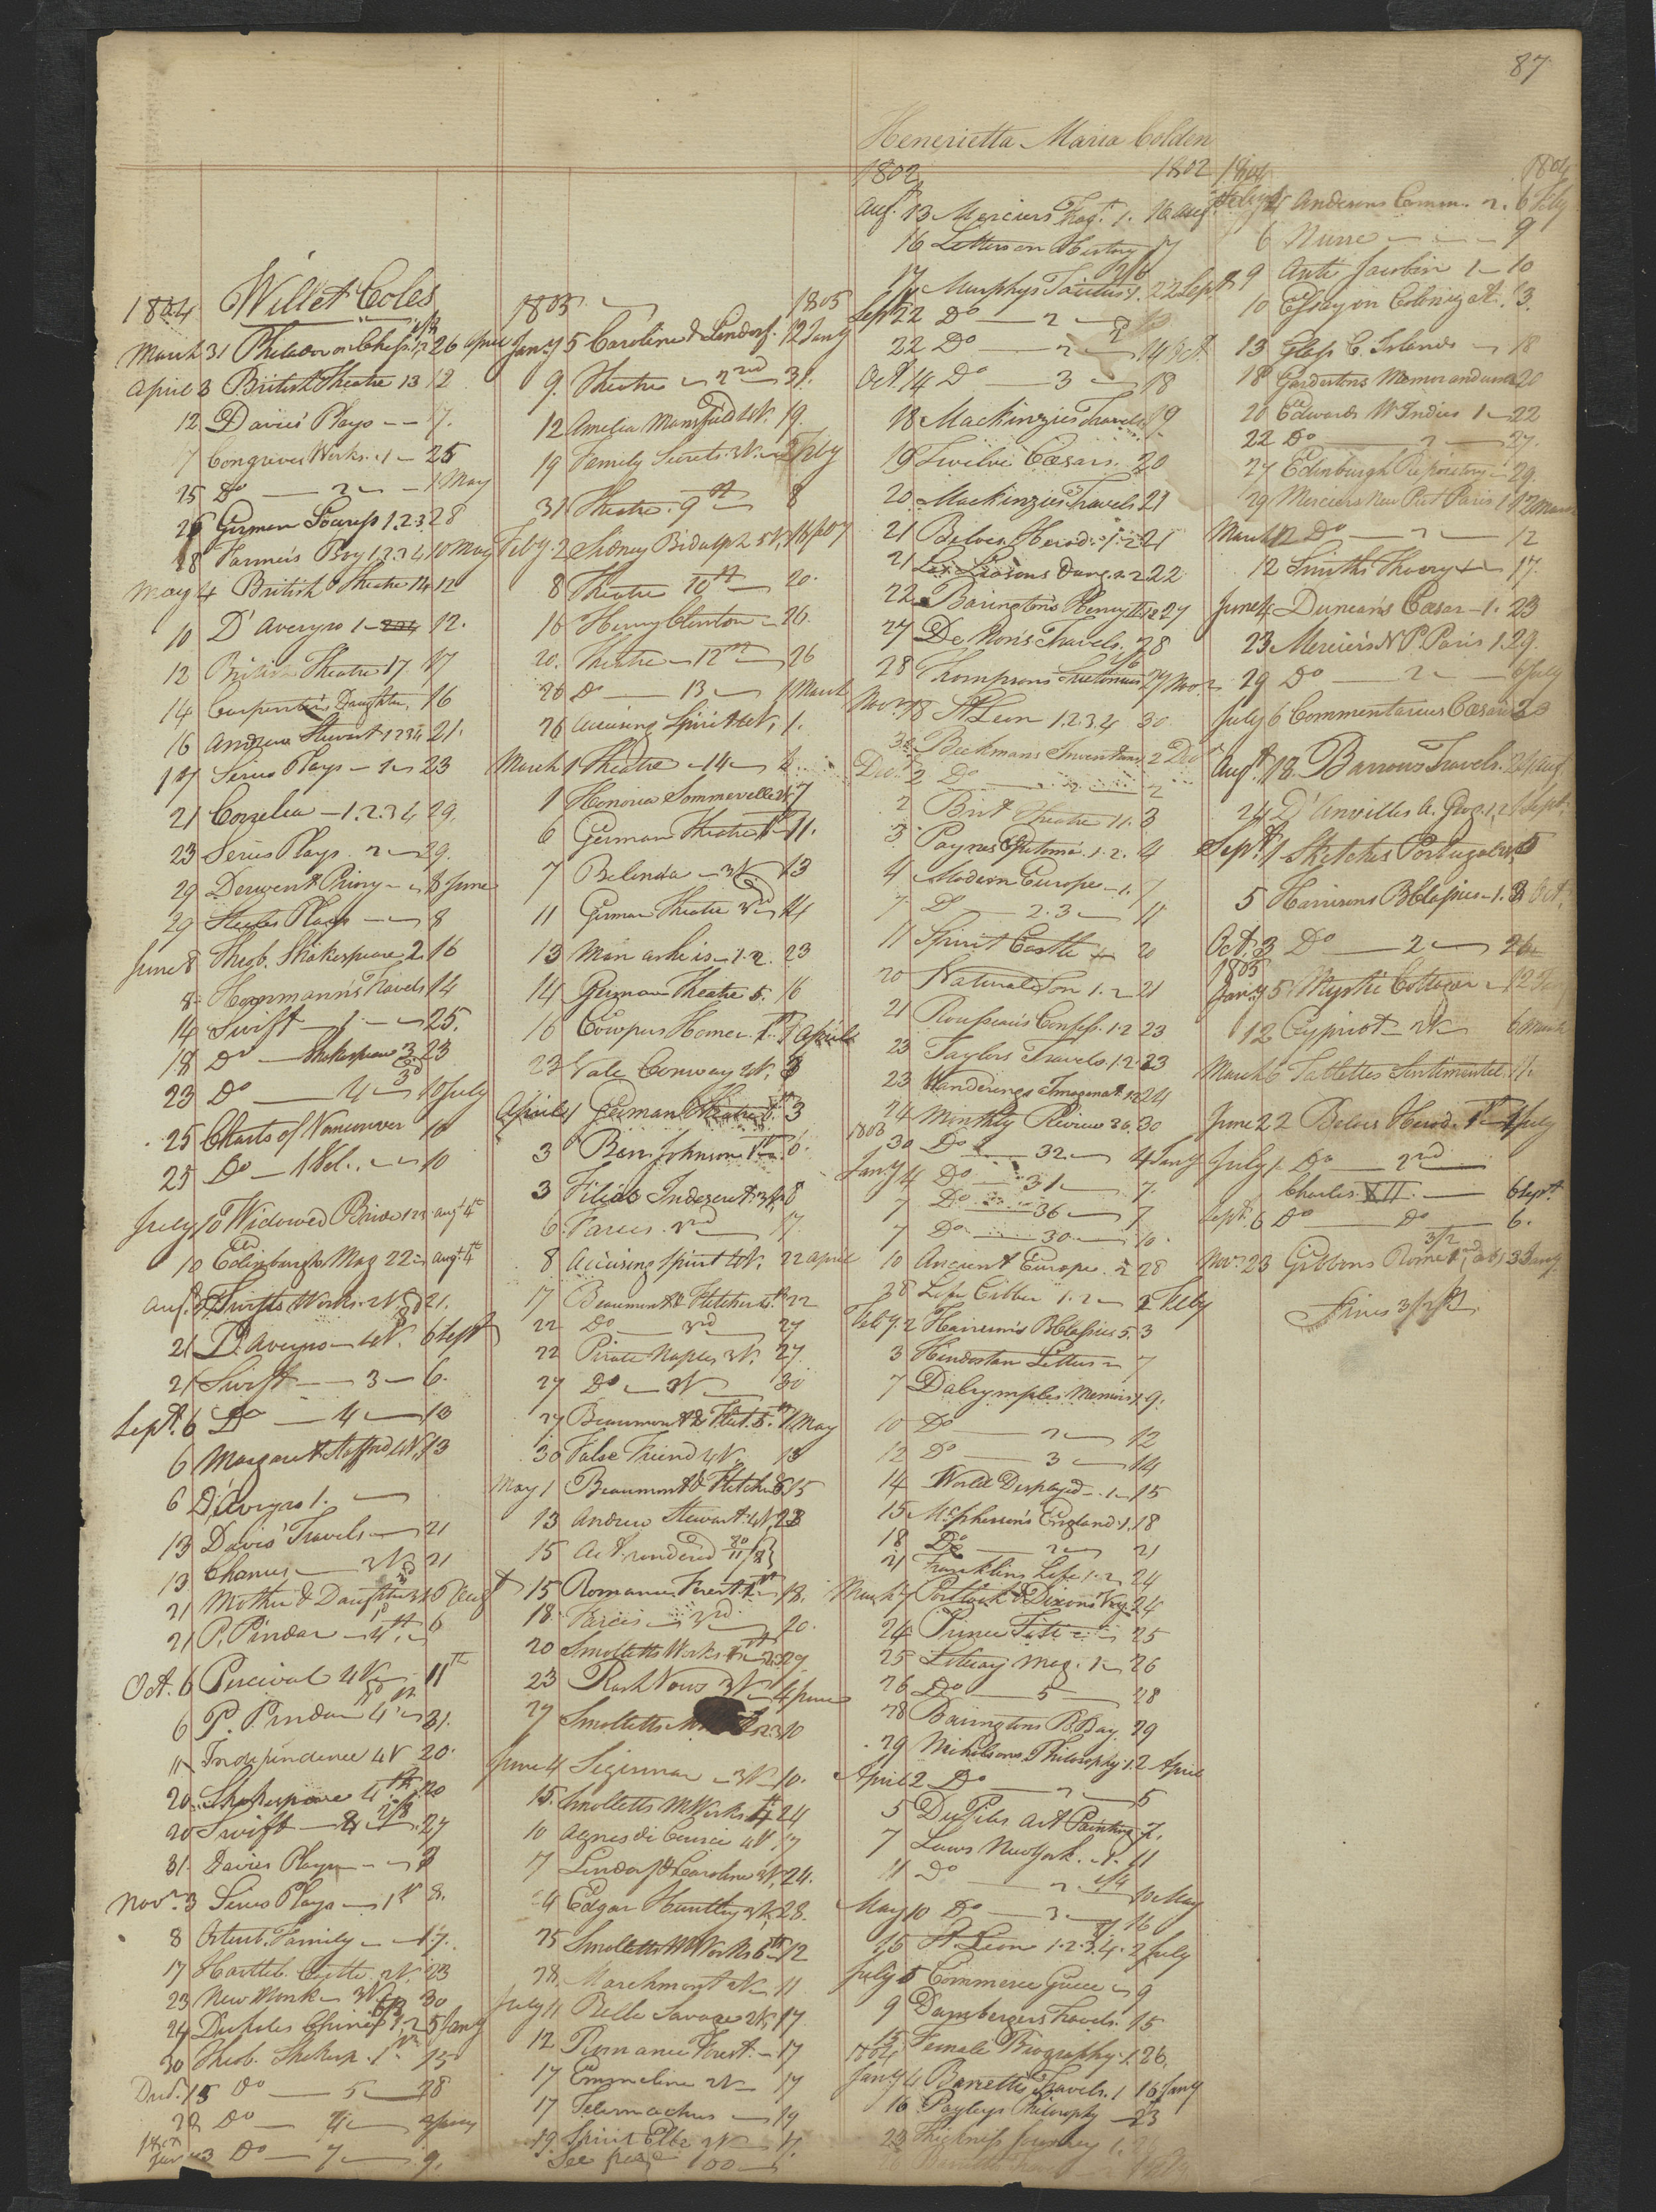 87
Willet Coles
1804
March 31 Philidor on Chess 26 April
April 3 British Theatre 13 12
12 Davies' Plays 17.
17 Congreves Works. 1 25
25 Do 2 1 May
26 German 1.2.3 28
28 Farmer's Boy 1.2.3.4 10 May
May 4 British Theatre 14 12
10 D'Averyro 1 12.
12 British Theatre 17. 17
14 Carpenter's Daughter, 16
16 Andrew Stewart 1234 21.
17 Series Plays 1 23
21 Corzelia 1.2.3 4 29.
23 Series Plays. 2 29.
29 Derwent Priory 8 June
29 Plays 8
June 8 Theob. Shakespeare 2 16
8 Travels 14
14 Swift 1 25.
18 Do Shakespeare 3 23
23 Do 4 10 July
25 Charts of Vancouver 10
25 Do 1 Vol. 10
July 10 Widowed Bride 123 augt 4th
10 Edinburgh Mag 22 augt 4th
aug. Swifts Works. 2 V. 21.
21 D'Averyro 4 V. 6 Sept
21 Swift 3 6.
Sept. 6 Do 4 13
6 Margaret 4V. 13
6 D'Averyro 1.
13 Davis' Travels 21
13 Chances 2V. 21
21 Mother & Daughter 3V.
21 P. Pindar 4th. 6
Oct. 6 Percival 4V 11th
6 P. Pindar 4 31.
11 Independence 4V 20.
20 Shakespeare 4th. 20
20 Swift 27
31 Davies Plays 3
Novr. 3 Series Plays 1st 8.
8 Family 17.
17 Castle 2V. 23
23 New Monk 3V. 30
24 5 Jany
30 Theob. Shakesp. 15
Decr. 15 Do 5 28
28 Do 3 Jany
Jany 3 Do 7 9.
1805 1805
Jany 5 Caroline & Lindorf. 12 Jany
9. Theatre 2nd 31.
12 Amelia Mansfield 4V. 19.
19 Family Secrets 3V. 2 Feby
31 Theatre. 9th 8
Feby. 2 Sidney Bidulph 5V.
8 Theatre 10th 20.
16 Henry Clinton 26.
20. Theatre 12th 26
26 Do 13 1 March
26 Accusing Spirit 4V, 1.
March 1 Theatre 14
1 Honoria Sommerville 4V 7
6 German Theatre 1st 11.
7 Belinda 3V 13
11 German Theatre 3rd 14
13 Man as he is 1.2. 23
14 German Theatre 5. 16
16 Cowpers Homer. 1st. 1 April
23 Vale Conway 4V. 3
April 1 German Theatre 3
3 Ben. Johnson 1st. 6.
3 Filial Indiscret. 3V. 8
6. Farces. 2nd 17.
8 Accusing Spirit 4V. 22 April
17 Beaumont & Fletcher 22
22 Do 3rd 27
22 Pirate Naples 3V. 27
27 Do 3V 30
27 Beaumont & Flet. 5. 1 May
30 False Friend 4V. 13
May 1 Beaumont & Fletcher 6 15
13 Andrew Stewart. 4V. 23
15 Act. rendered
15 Romance Forest. 1st 18.
18 Farces 3rd 20.
20 Smolletts Works 27.
23 Rash Vows 3V 4 June
27 Smolletts 10
June 4 3V 10.
15. Smolletts M. Works 4 24
10 Agnes di Courci 4V. 17
17 Lindorf & Caroline 3V. 24.
24 Edgar Huntley 3V. 28.
25 Smolletts M Works 6th 12
28. Marchmont 4V 11
July 11 Belle Savage 2V. 17.
12 Romance Forest. 17
17 Emmeline 2V 17
17 Telemachus 19
19. Spirit Elbe 2V 17.
See page 100
Henerietta Maria Colden
1802 1802
Aug. 13 Merciers Frag. 1. 16 Aug.
16 Letters on History 17
17 Murphys Tacitus 1. 22 Sept
Sept 22 Do 2
22 Do 2 14 Oct
Oct. 14 Do 3 18
18 Mackinzies Travels 19
19 Twelve Cæsars. 20
20 Mackinzies Travels 21
21 Beloes Herod. 1.2 21
21 Les Liasons Dang. 2 22
22 Baringtons Henry 27
27 De Non's Travels. 28
28 Thompsons Suetonius 27 Nov.
Novr. 18 St Leon 1.2.3.4 30.
30 Beckmans Inventions. 2 Decr
Decr. 2 Do 2
2 Brit Theatre 11. 3
3. Paynes Epitome. 1.2. 4
4 Modern Europe 1. 7
7 Do 2.3 11
11 Spirit Castle 20
20 Natural Son 1.2 21
21 Rousseau's Confess. 1.2 23
23 Taylors Travels 1.2. 23
23 Wanderings Imaginat. 1.2 24
24 Monthly Review 30
1803
30 Do 32 4 Jany
Jany 4 Do 31 7.
7 Do 36 7
7 Do 30 10.
10 Ancient Europe. 2 28
28 Life Cibber 1.2 2 Feby
Feby. 2 Harrisons B Classics 5. 3
3 Hindostan Letters 7
7 Dalrymples Memoirs 1. 9.
10 Do 2 12
12 Do 3 14
14 World Displayed 1 15
15 McPherson's England. 1. 18
18 Do 2 21
21 Franklins Life 1.2 24
March 7 Portlock & Dixons Voy. 24
24 Prince Titi 25
25 Literary Mag. 1 26
26 Do 5 28
28 Barringtons B. Bay 29
29 Nicholsons Philosophy. 1. 2 April
April 2 Do 2 5
5 Du Piles Art Painting 7.
7 Laws New York. 1. 11
11 Do 2 10 May
May 10 Do 3 16
16 St. Leon 1.2.3.4. 2 July
July 5 Commerce Greece 9
9 Dambergers Travels. 15
15 Female Biography. 1. 26.
1804
Jany 4 Barrettis Travels. 1 16 Jany
16 Payleys Philosophy 23
23 Thickness Journey 1.
1804 1804
Feby 4 Andersons Comm. 2. 6 Feby
6 Nurse 9
9 Anti Jacobin 1 10
10 Essay on Colonizat. 13.
13 Glass C. Islands 18
18 Memorandums 20
20 Edwards W Indies 1 22
22 Do 2 27.
27 Edinburgh Repository 29.
29 Merciers New Pict Paris 1 12 March
March 12 Do 2 12
12 Smiths Theory 17.
June 4 Duncan's Cæsar 1. 23
23 Mercier's N P. Paris 1. 29.
29 Do 2 6 July
July 6 Commentarius Cæsar 23
Augt 18. Barrows Travels. 24 Aug
24 D'Anvilles A. Geog. 1.2 1 Sept.
Sept. 1 Sketches Portugal 5
5 Harrisons B Classics 1. 3 Oct.
Oct. 3 Do 2 26
1805
Jany 5 Mystic Cottager 12 Jany
12 Cypriots 2V 6 March
March 6 Tablettes Sentimental. 11.
June 22 Beloes Herod. 1st 1 July
July 1 Do 2nd
Charles XII. 6 Sept.
Sept. 6 Do Do 6.
Novr 23 Gibbons Rome 3 Jany
Fines 3/2